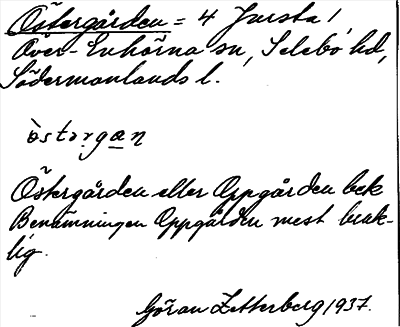 Östergården = 4 Jursta 1,
Över-Enhörna sn, Selebo hd,
Södermanlands l.
òstərgan
Östergården eller Oppgården bek
Benämningen Oppgården mest bruk-
lig.
Göran Zetterberg 1937.